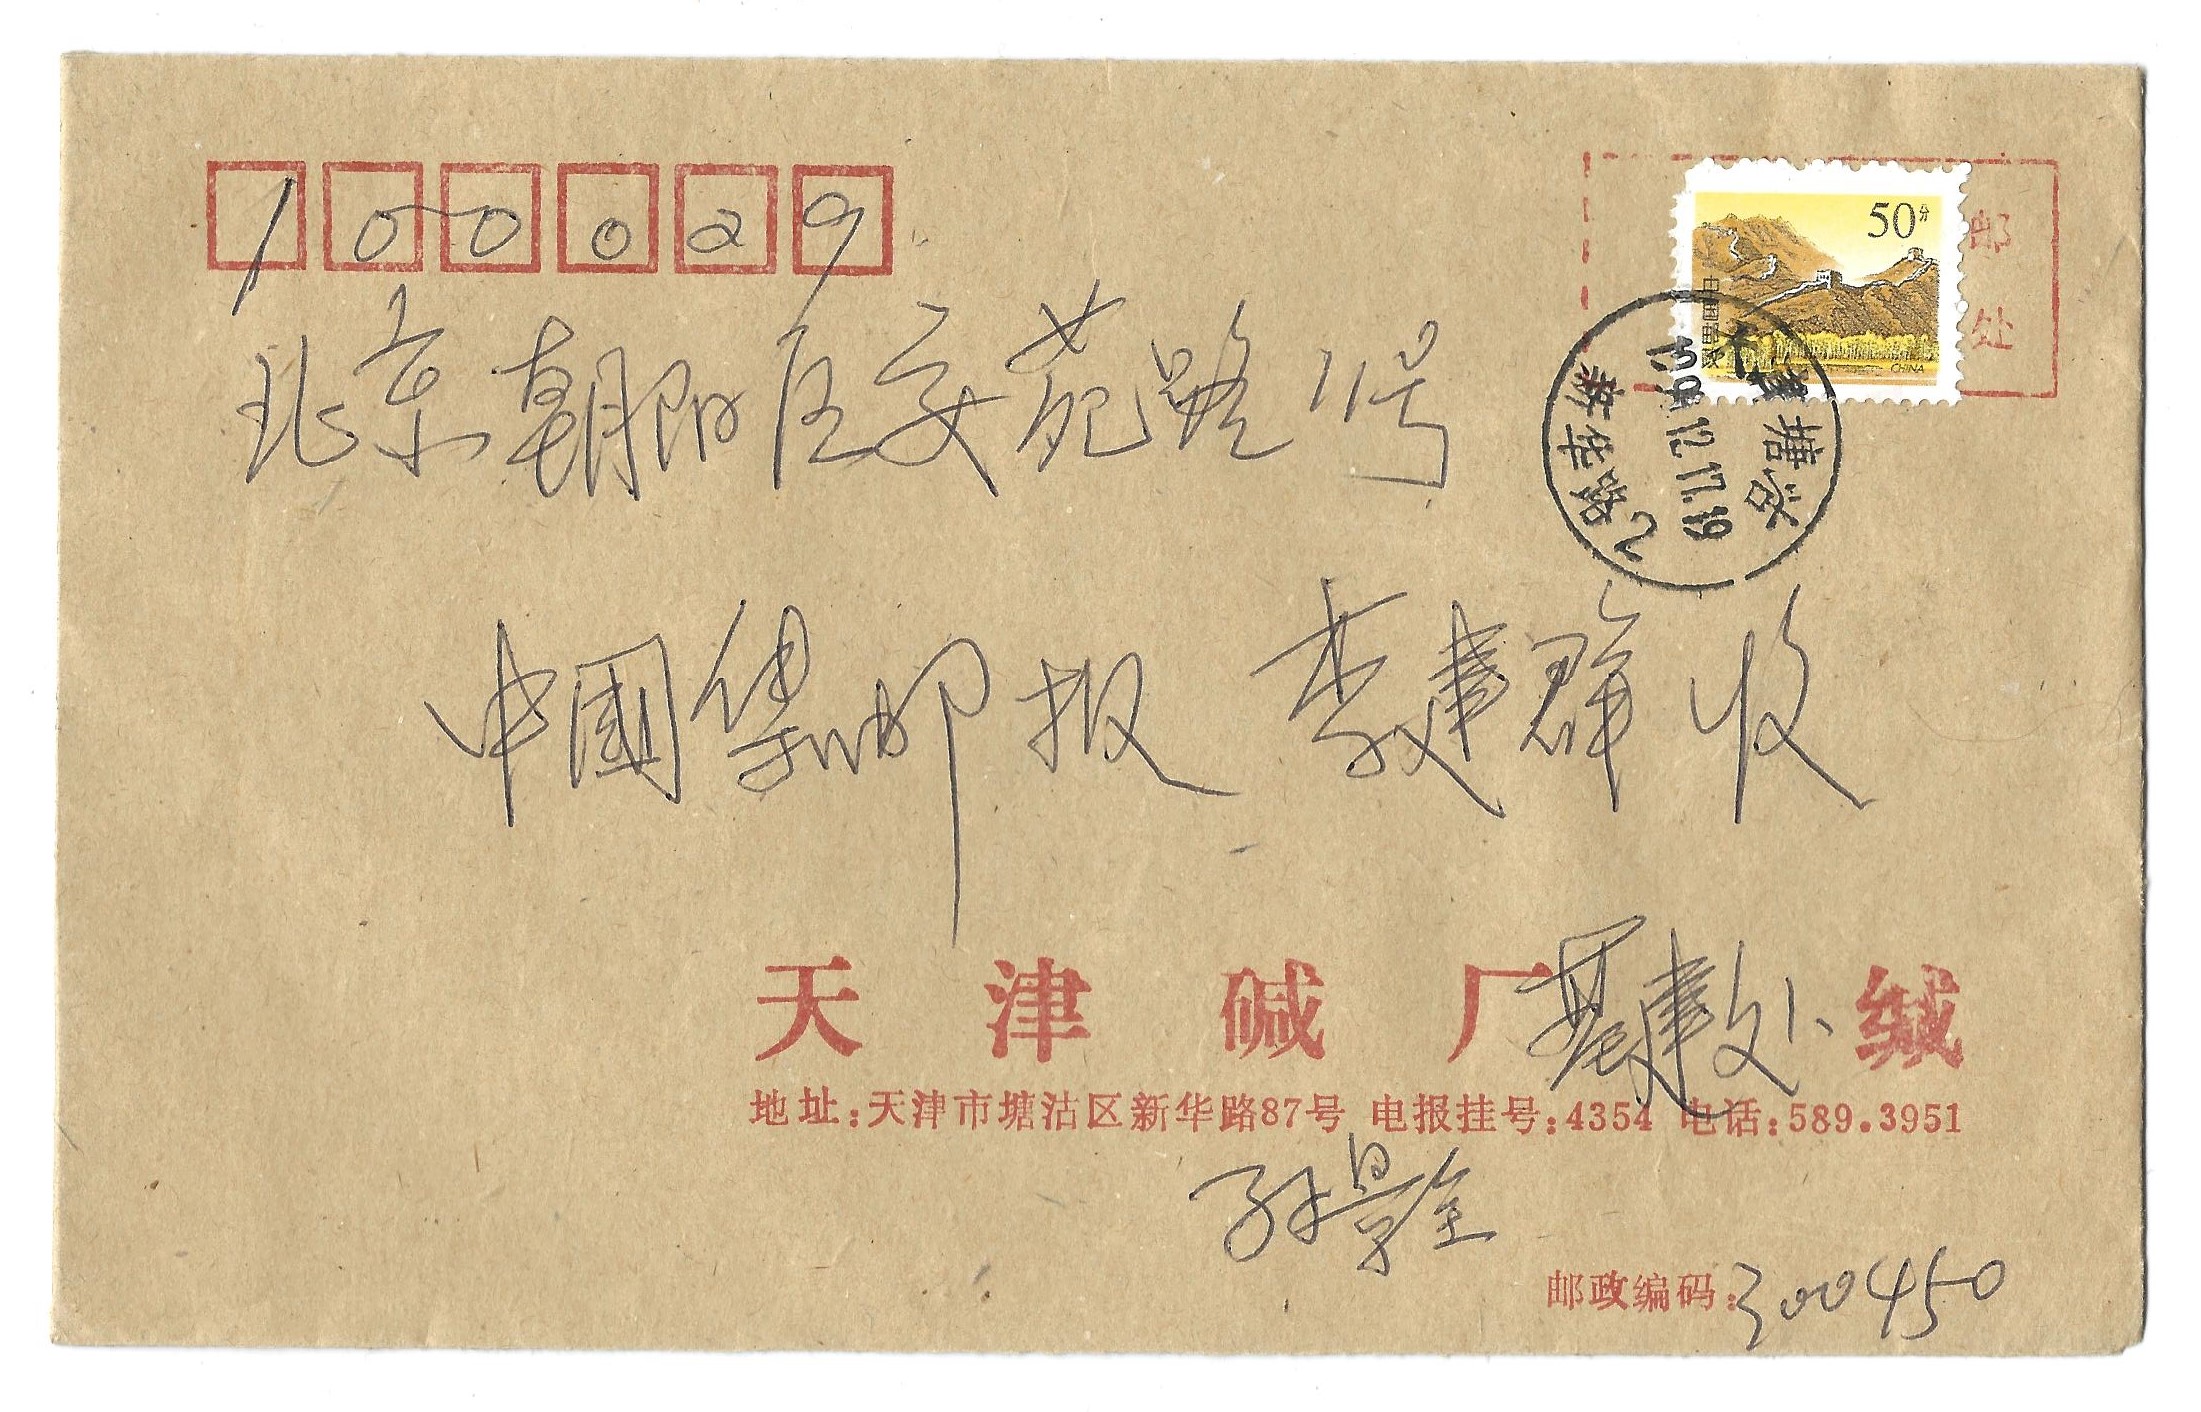 100029
50分
中国邮政
CHINA
邮
处
北京朝阳区安苑路11号
天津塘沽
12.17.19
新华路2
中国集邮报 李建群 收
天津碱厂 基建处 缄
地址：天津市塘沽区新华路87号 电报挂号：4354 电话：589.3951
孙景全
邮政编码：300450